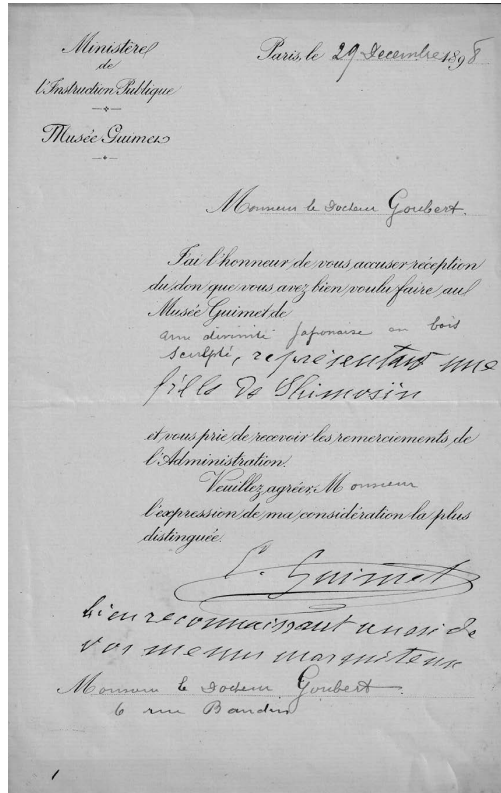 Ministère
de
l'Instruction Publique
Musée Guimet
Paris, le 29 Decembre 1898
Monsieur le Docteur Goubert.
J'ai l'honneur de vous accuser réception
du don que vous avez bien voulu faire au
Musée Guimet de
une divinité Japonaise en bois
sculpté, représentant une
fille de Shimosin
et vous prie de recevoir les remerciements de
l'Administration.
Veuillez agréer, Monsieur
l'expression de ma considération la plus
distinguée.
E. Guimet
bien reconnaissant aussi de
vos menus
Monsieur le Docteur Goubert
6 rue Baudin